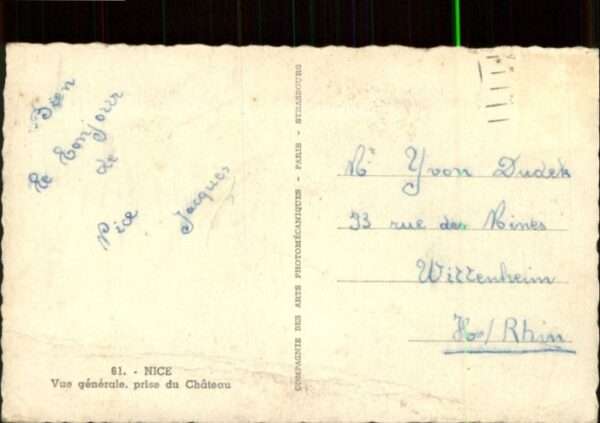 Bien
le bonjour
de
Nice
Jacques
61. - NICE
Vue générale, prise du Château
COMPAGNIE DES ARTS PHOTOMÉCANIQUES - PARIS - STRASBOURG
Mr Yvon Dudek
93 rue des Mines
Wittenheim
Ht/Rhin